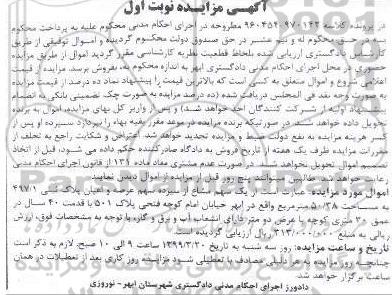 آگهی مزایده نوبت اول
در پرونده کلاسه ۹۶۰۴۵۴ـ۹۷۰۱۴۳ مطروحه در اجرای احکام مدنی محکوم علیه به پرداخت محکوم
در حق محکوم له و نیم عشر در حق صندوق دولت محکوم گردیده و اموال توقیفی از طریق
دادگستری ارزیابی شده بلحاظ قطعیت نظریه کارشناسی مقرر گردید اموال از طریق مزایده
حضوری در محل اجرای احکام مدنی دادگستری ابهر به اندازه محکوم به، بفروش برسد. مزایده از قیمت
اعلامی شروع و اموال متعلق به کسی است که بالاترین قیمت را پیشنهاد نماد ده درصد از قیمت مزایده
به صورت نقد فی المجلس دریافت شده (ده درصد مزایده به صورت چک تضمینی بانکی به انضمام
پیشنهاد از شرکت کنندگان اخذ خواهد شد) و پس از واریز کل بهای مزایده، اموال به برنده
تحویل داده خواهد شد. در صورتیکه برنده مزایده در موعد مقرر بقیه بهاء را نپردازد سپرده او پس از
کسر هزینه مزایده به نفع دولت ضبط و مزایده تجدید خواهد شد. اعتراض و شکایت راجع به تخلف از
مقررات مزایده ظرف یک هفته از تاریخ فروش به دادگاه صادرکننده حکم داده می شود، قبل از اتخاذ
تصمیم اموال تحویل نخواهد شد. در صورت عدم مشتری مفاد ماده ۱۳۱ از قانون اجرای احکام مدنی
رعایت خواهد شد. طالبین میتوانند پنج روز قبل از مزایده از اموال دیدن نمایند
اموال مورد مزایده: عبارت است از یک سهم مشاع از سیزده سهم عرصه و اعیان پلاک ثبتی ۴۹۷/۱
به مساحت ۵۰/۳۸ مترمربع واقع در ابهر خیابان امام کوچه فتحی پلاک ۵۰۱ با قدمت ۴۰ سال در
عمق ۳۰ متری کوچه با عرض دو متر دارای انشعاب آب و برق و گاز، با توجه به مشخصات فوق، ارزش
ریالی به مبلغ ۳۱۳/۰۰۰/۰۰۰ ریال ارزیابی گردیده است.
تاریخ و ساعت مزایده: روز سه شنبه به تاریخ ۱۳۹۹/۳/۲۰ ساعت ۹ الی ۱۰ صبح. لازم به ذکر است
چنانچه روز مزایده به هر دلیلی مصادف با تعطیلی شود مزایده روز کاری بعد از تعطیلات در همان
ساعت برگزار خواهد شد.
دادورز اجرای احکام مدنی دادگستری شهرستان ابهر- نوروزی